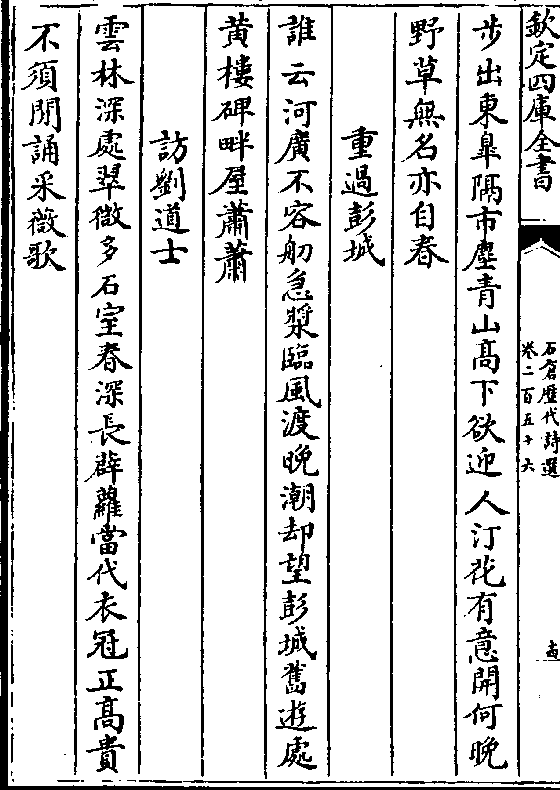 欽定四庫全書
石倉歷代詩選
卷二百五十六
步出東臯隔市塵青山髙下欲迎人汀花有意開何晚
野草無名亦自春
重過彭城
誰云河廣不容舠急槳臨風渡晚潮却望彭城舊遊處
黄樓碑畔屋蕭蕭
訪劉道士
雲林深處翠微多石室春深長薜蘿當代衣冠正髙貴
不須閒誦采薇歌